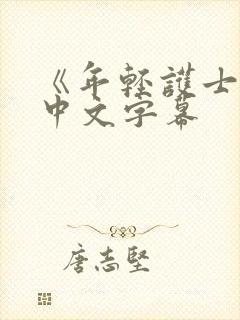 《年輕護士
中文字幕
唐志堅